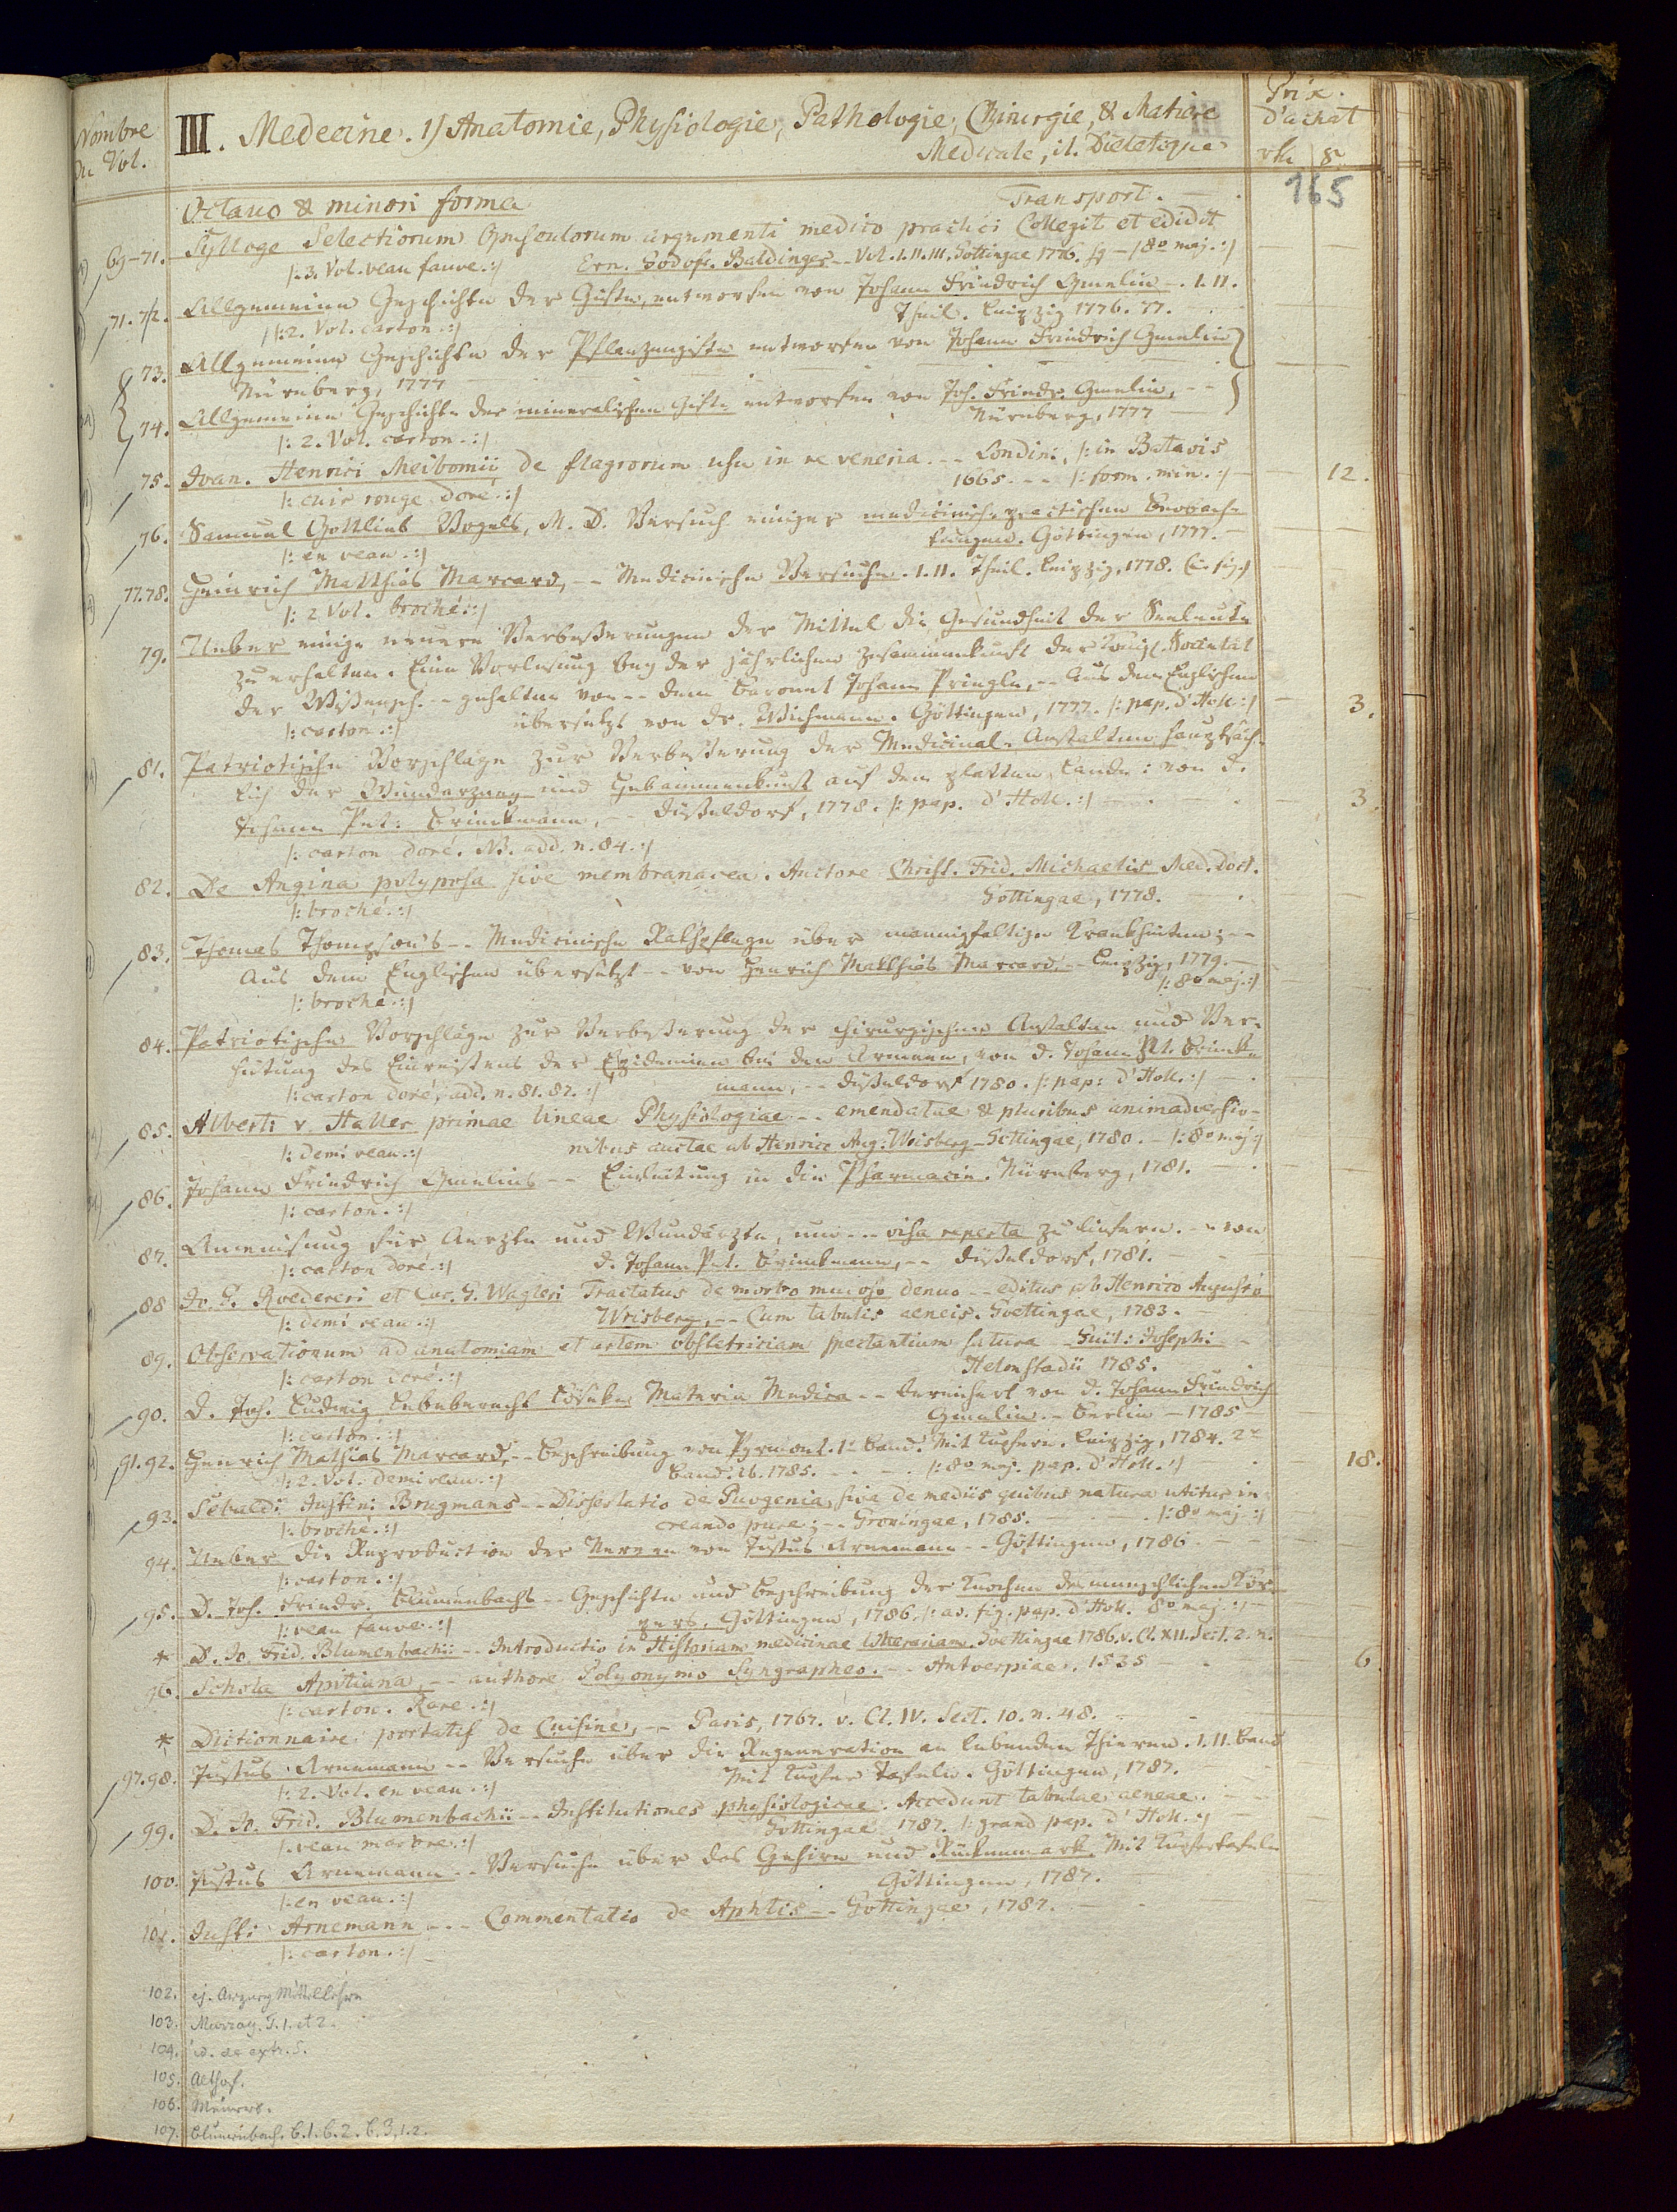 Nombre
du Vol.
III. Medecine. 1) Anatomie, Physiologie, Pathologie, Chirurgie, & Matiere
Medicale, it. Dietetique
Prix
d'achat
165
Octavo & minori forma
Transport.
69-71. Sylloge Selectiorum Opusculorum argumenti medico practici Collegit et edidit
|: 3. Vol. veau fauve. :| Ern. Godofr. Baldinger -- Vol. I. II. III. Gottingae 1776. sq - |8º maj. :|
71. 72. Allgemeine Geschichte der Gifte, entworfen von Johann Friedrich Gmelin -. I. II.
|: 2. Vol. carton. :| Theil. Leipzig 1776. 77.
73. Allgemeine Geschichte der Pflanzengifte entworfen von Johann Friedrich Gmelin
Nürnberg, 1777
74. Allgemeine Geschichte der mineralischen Gifte entworfen von Joh. Friedr. Gmelin, --
Nürnberg, 1777
|: 2. Vol. carton. :|
75. Joan. Henrici Meibomii de flagrorum usu in re veneria. -- Londini, |: in Batavis
1665. -- |: form. min. :| 12.
|: cuir rouge doré. :|
76. Samuel Gottlieb Vogels, M. D. Versuch einiger medicinisch-practischen Beobach-
tungen. Göttingen, 1777.
|: en veau. :|
77. 78. Heinrich Matthias Marcard, -- Medicinische Versuche. I. II. Theil. Leipzig, 1778. (c. fig.)
|: 2 Vol. broché. :|
79. Ueber einige neuere Verbeßerungen der Mittel die Gesundheit der Seeleute
zu erhalten. Eine Vorlesung bey der jährlichen Zusammenkunft der Königl. Societät
der Wißensch. -- gehalten von -- dem Baronet Johann Pringle, -- Aus dem Englischen
übersetzt von Dr. Wichmann. Göttingen, 1777. |: pap. d'Holl. :| 3.
|: carton. :|
81. Patriotische Vorschläge zur Verbeßerung der Medicinal-Anstalten hauptsäch-
lich der Wundarzney und Hebammenkunst auf dem platten Lande: von D.
Johann Pet. Brinckmann, -- Düßeldorf, 1778. |: pap. d'Holl. :| 3.
|: carton doré. NB. add. n. 84. :|
82. De Angina polyposa sive membranacea. Auctore Christ. Frid. Michaelis Med. Doct.
|: broché. :| Gottingae, 1778.
83. Thomas Thompson's -- Medicinische Rathpflege über mannigfaltige Krankheiten; --
Aus dem Englischen übersetzt -- von Henrich Matthias Marcard. -- Leipzig, 1779.
|: 8º maj. :|
|: broché. :|
84. Patriotische Vorschläge zur Verbeßerung der chirurgischen Anstalten und Ver-
hütung des Einreißens der Epidemien bei den Armeen, von D. Johann Pet. Brinck-
mann, -- Düßeldorf 1780. |: pap: d'Holl. :|
|: carton doré, add. n. 81. 87. :|
85. Alberti v. Haller primae lineae Physiologiae -- emendatae & pluribus animadversio-
nibus auctae ab Henrico Aug: Wrisberg - Gottingae, 1780. - |: 8º maj. :|
|: demi veau. :|
86. Johann Friedrich Gmelins -- Einleitung in die Pharmacie. Nürnberg, 1781.
|: carton. :|
87. Anweisung für Aerzte und Wundärzte, um -- visa reperta zu liefern. -- von
D. Johann Pet. Brinckmann, -- Düßeldorf, 1781.
|: carton doré. :|
88 Jo. G. Roedereri et Car. G. Wagleri Tractatus de morbo mucoso denuo -- editus ab Henrico Augusto
Wrisberg, -- Cum tabulis aeneis. Goettingae, 1783.
|: demi veau. :|
89. Observationum ad anatomiam et artem obstetriciam spectantium satura Guil: Josephi
|: carton doré. :| Helmstadii 1785.
90. D. Joh. Ludwig Leberecht Löseke Materia Medica -- bereichert von D. Johann Friedrich
Gmelin. - Berlin - 1785
|: carton. :|
91. 92. Henrich Mathias Marcard, -- Beschreibung von Pyrmont. 1r Band. Mit Kupfern. Leipzig, 1784. 2r
|: 2. Vol. demi veau. :| Band. ib. 1785. |: 8º maj. pap. d'Holl. :| 18.
93. Sebaldi Justini Brugmans -- Dissertatio de Puogenia, sive de mediis quibus natura utitur in
creando pure; -- Groningae, 1785. |: 8º maj. :|
|: broché. :|
94. Ueber die Reproduction der Nerven von Justus Arnemann -- Göttingen, 1786
|: carton. :|
95. D. Joh. Friedr. Blumenbachs -- Geschichte und Beschreibung der Knochen des menschlichen Kör-
pers. Göttingen, 1786. |: av. fig. pap. d'Holl. 8º maj. :|
|: veau fauve. :|
* D. Jo. Frid. Blumenbachii -- Introductio in Historiam medicinae litterariam. Goettingae 1786. v. Cl. XII. Sect. 2. n.
96. Schola Apitiana, -- authore Polyonymo Syngrapheo. -- Antverpiae. 1535 6
|: carton. Rare. :|
* Dictionnaire portatif de Cuisine, -- Paris, 1767. v. Cl. IV. Sect. 10. n. 48.
97. 98. Justus Arnemann -- Versuche über die Regeneration an lebenden Thieren. I. II. Band
Mit Kupfer tafeln. Göttingen, 1787.
|: 2. Vol. en veau. :|
99. D. Jo. Frid. Blumenbachii -- Institutiones physiologicae. Accedunt tabulae aeneae.
Gottingae 1787. |: grand pap. d'Holl. :|
|: veau marbré. :|
100. Justus Arnemann -- Versuche über das Gehirn und Rückenmark. Mit Kupfertafeln
Göttingen, 1787.
|: en veau. :|
101. Justi Arnemann -- Commentatio de Aphtis -- Gottingae, 1787.
|: carton. :|
102. ej. Arzney Mittellehre
103. Murray. T. 1. et 2.
104. id. de extr. S.
105. Althof.
106.
107. Blumenbach. b. 1. b. 2. b. 3, 1. 2.